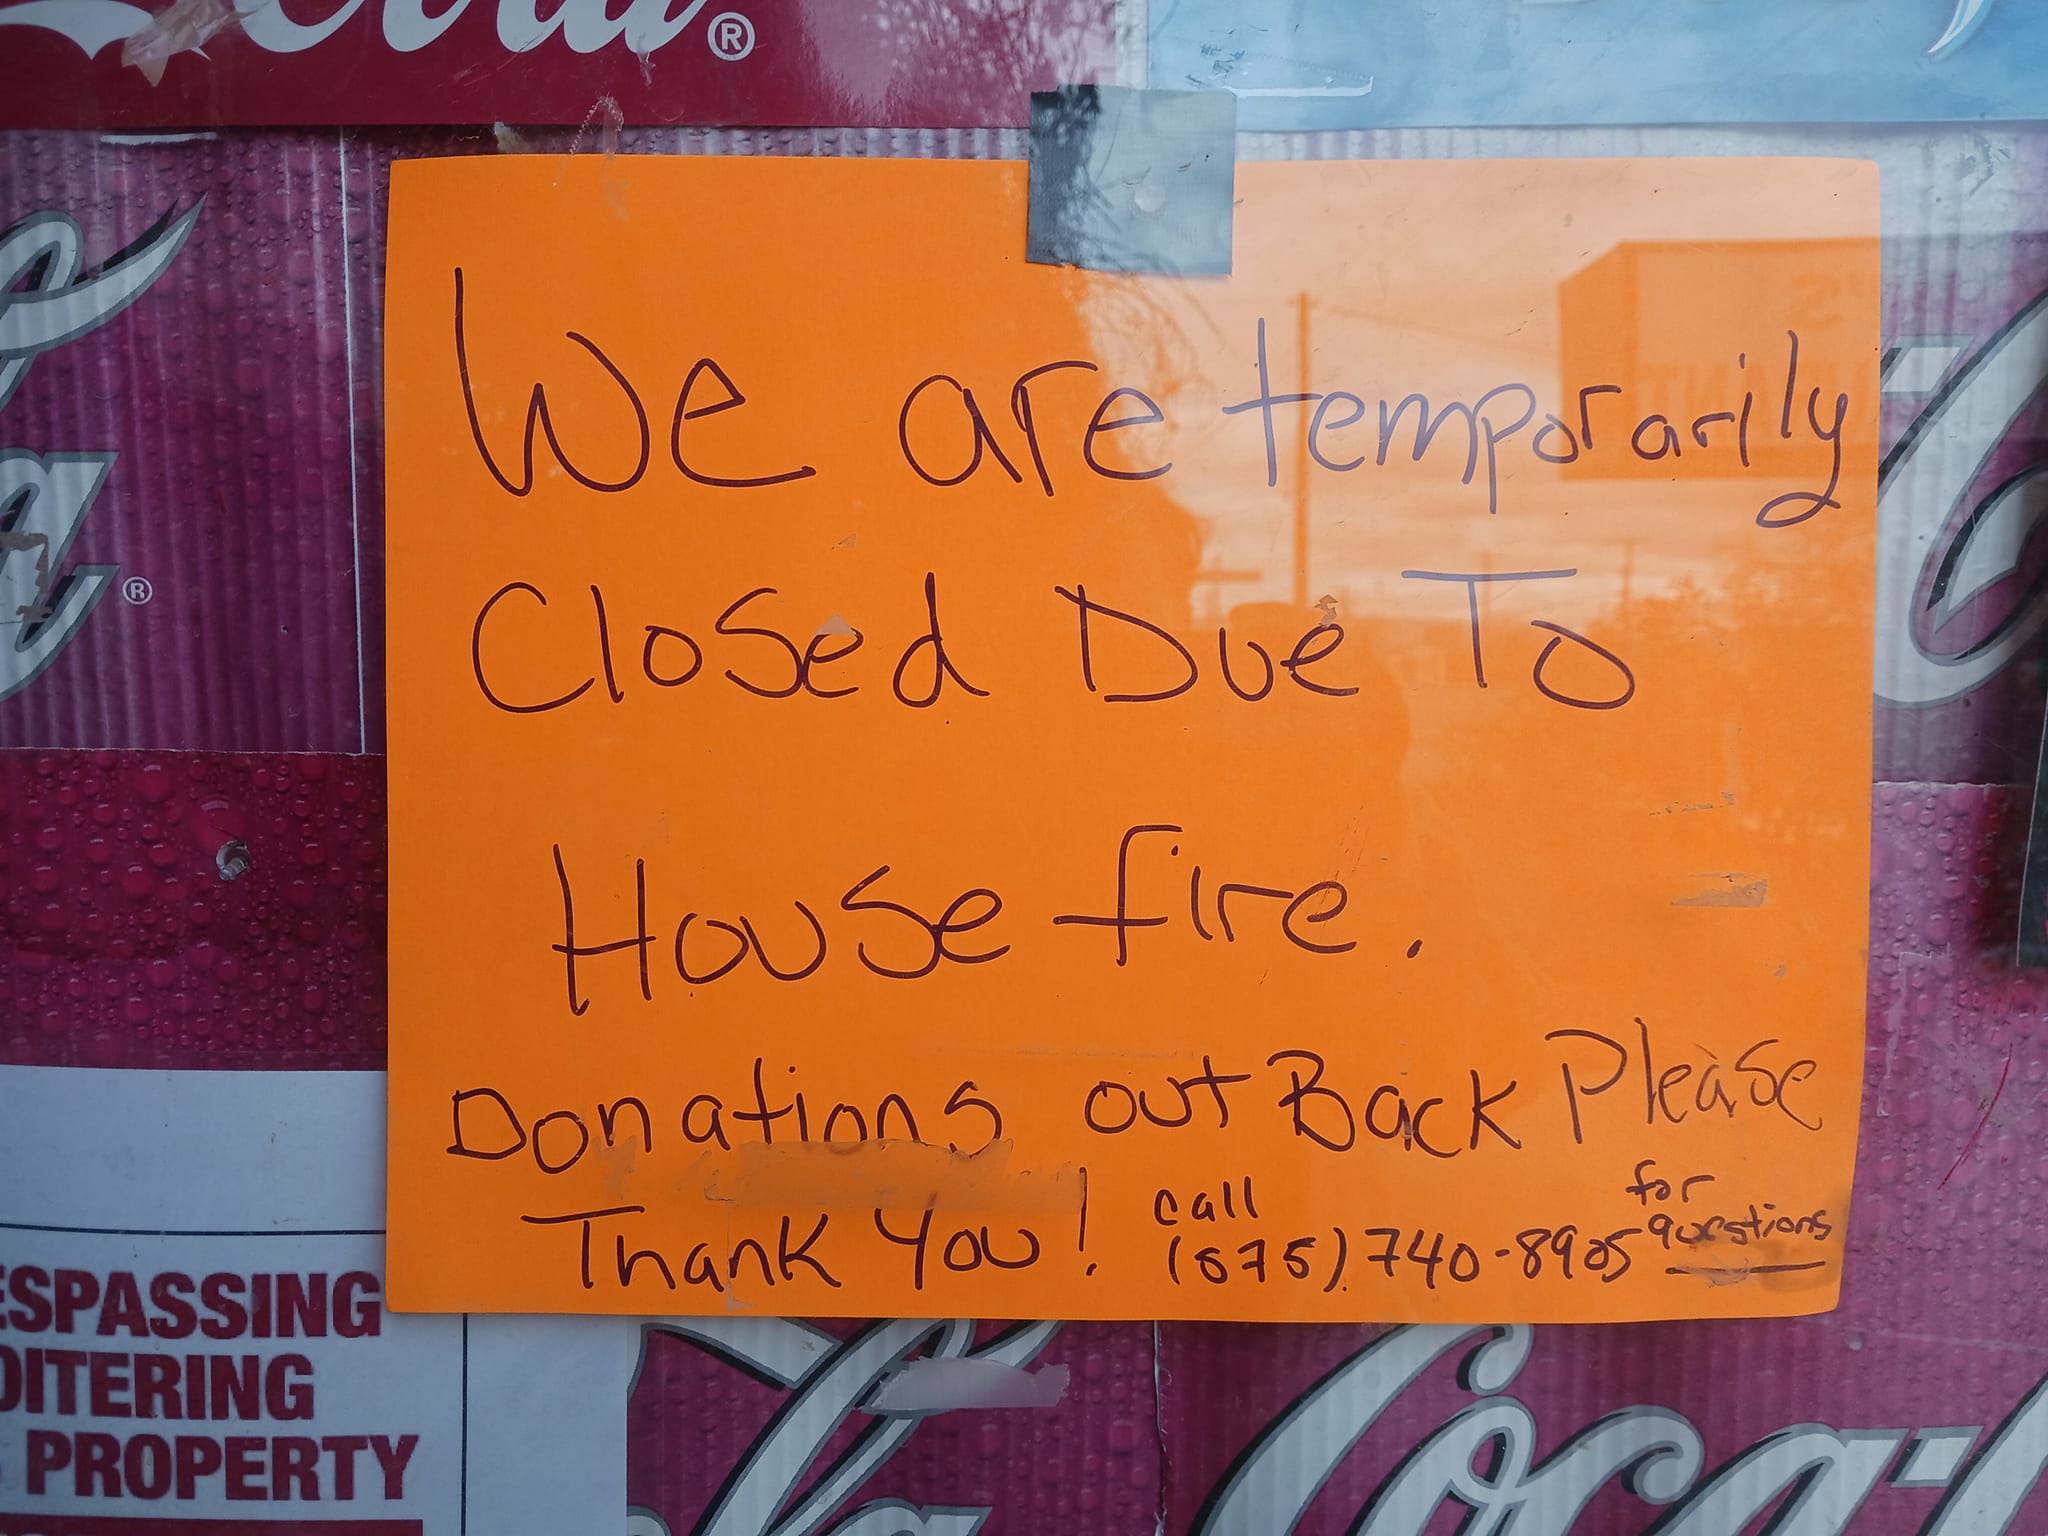 Cola®
We are temporarily
Closed Due To
House fire.
Donations out Back Please
Thank You! call (575) 740-8905 for questions
®
ESPASSING
OITERING
PROPERTY
Coca-